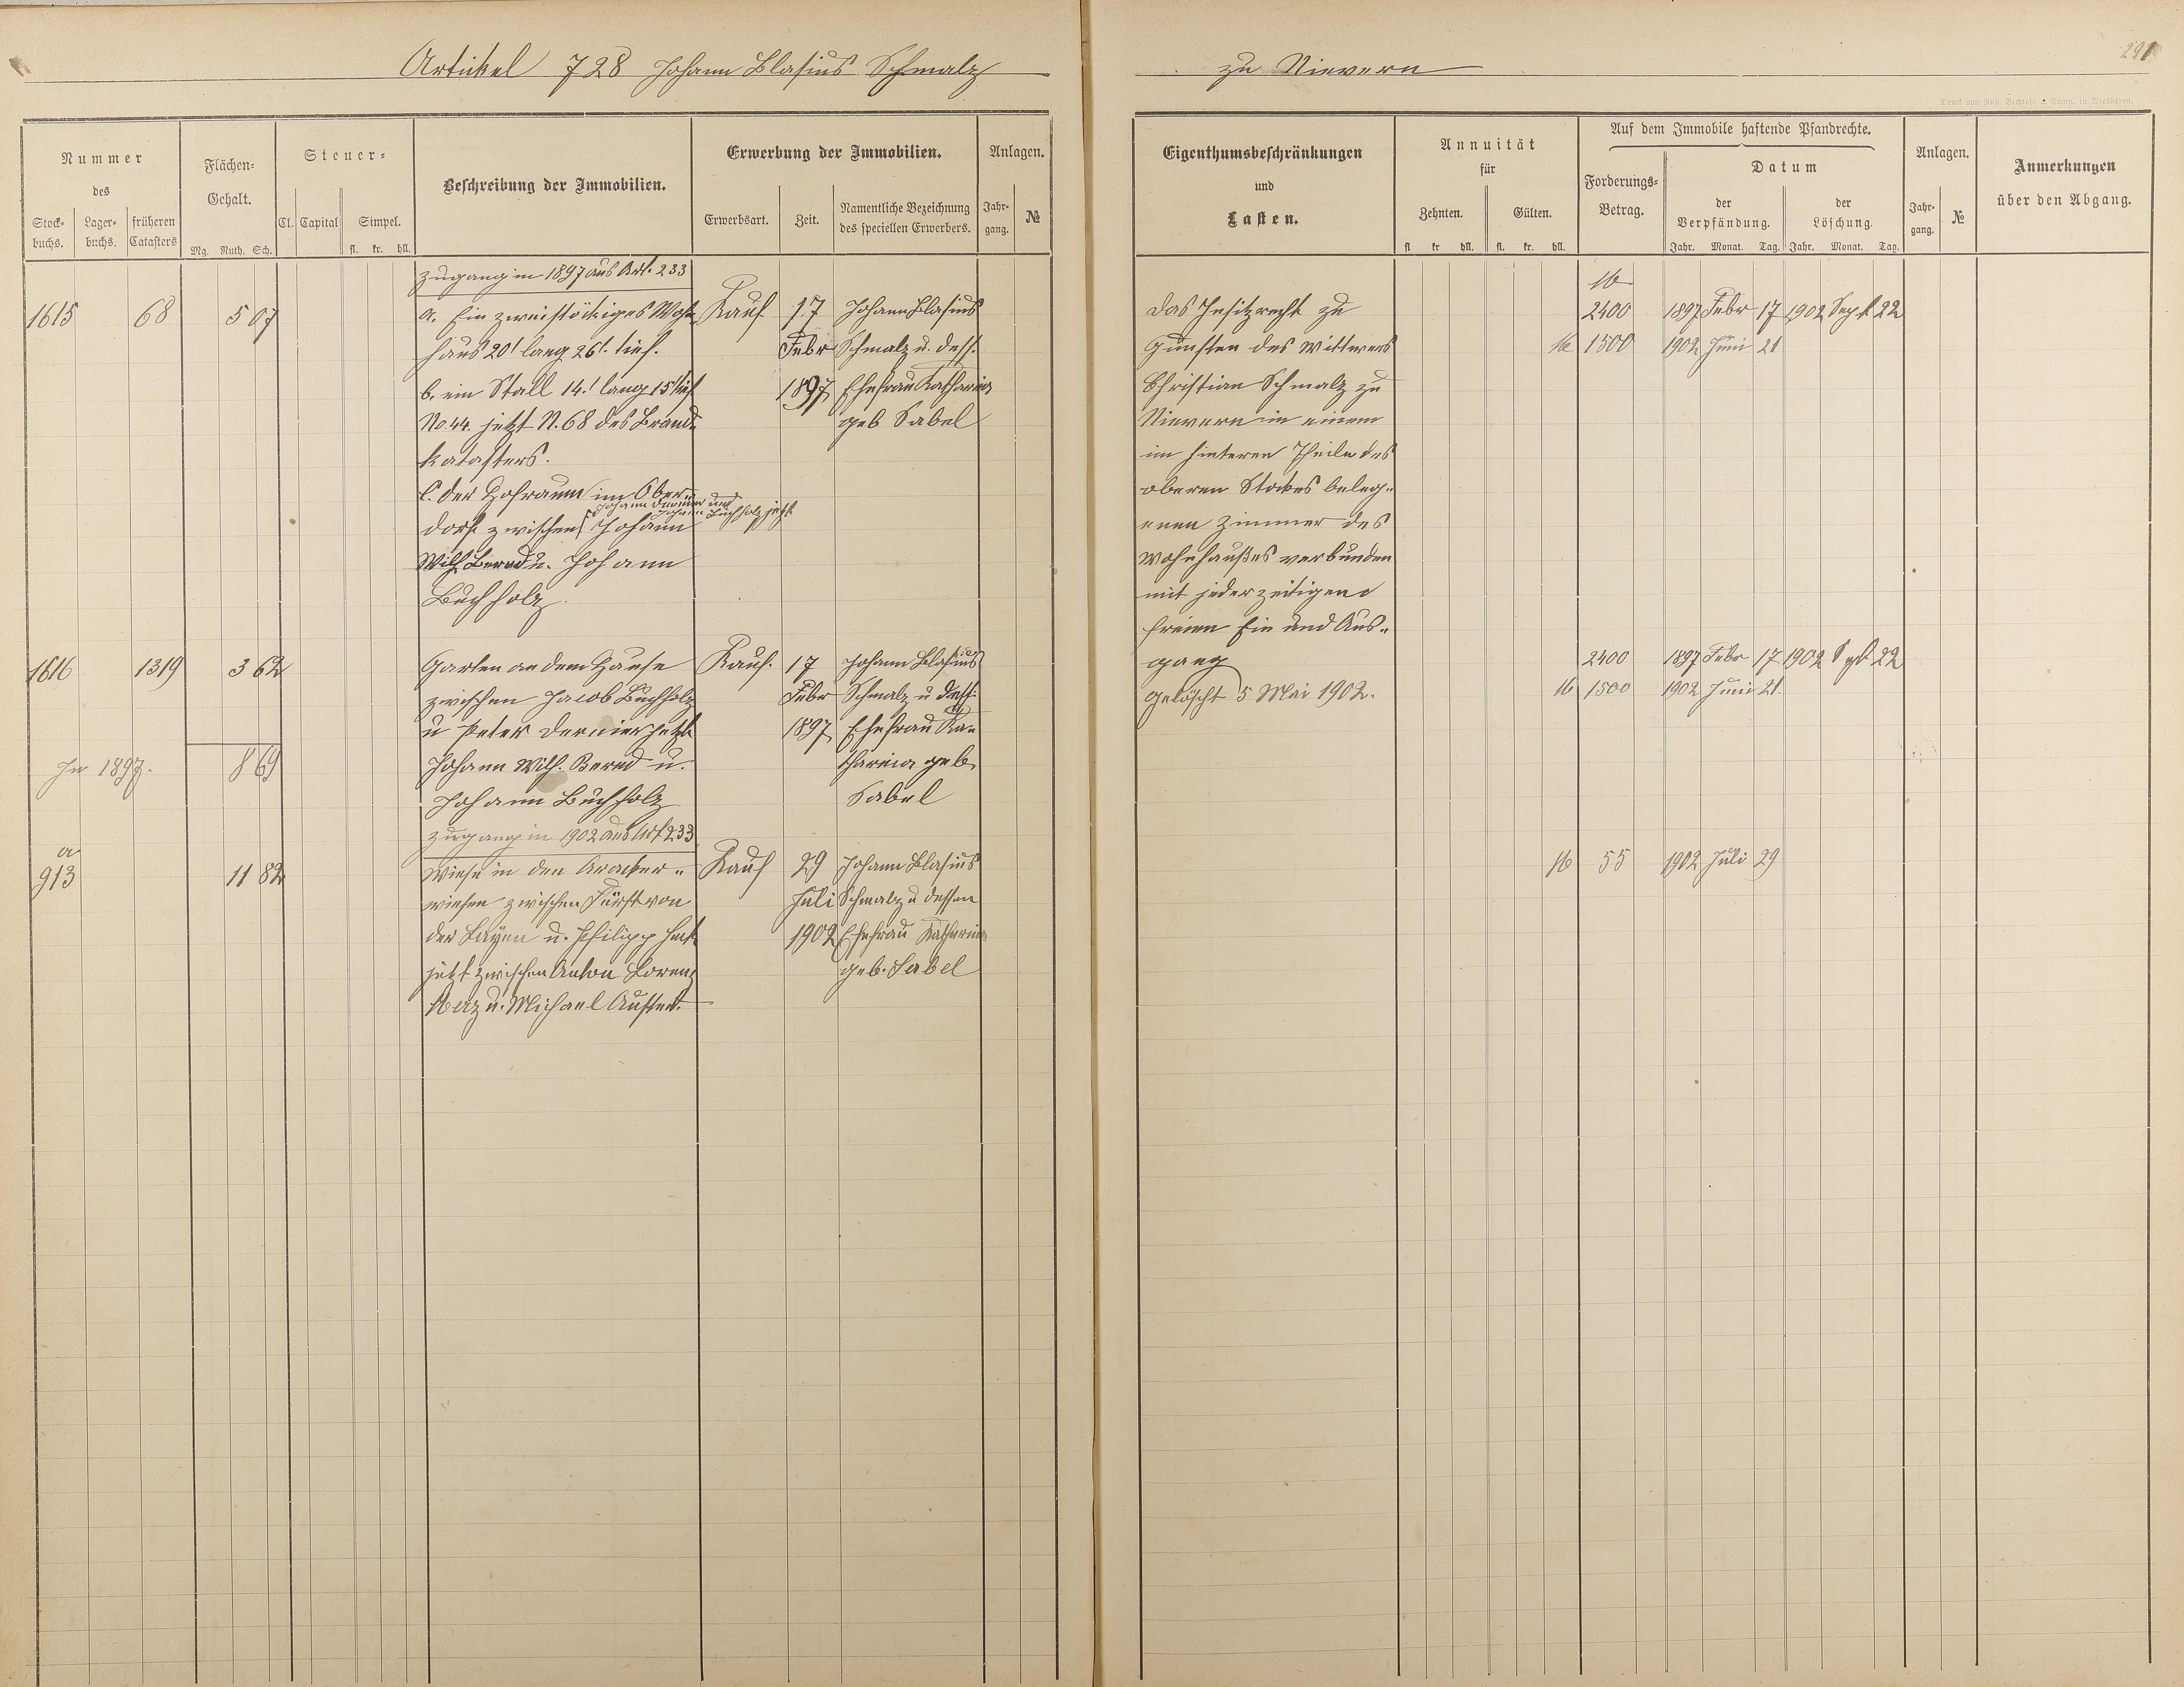 Artikel 728 Johann Blasius Schmalz
zu Nievern
291
Nummer
des
Stock-
buchs.
Lager-
buchs.
früheren
Catasters
Flächen-
Gehalt.
Mg. Ruth. Sch.
Steuer-
Cl. Capital Simpel.
fl. kr. hll.
Beschreibung der Immobilien.
Erwerbung der Immobilien.
Erwerbsart. Zeit. Namentliche Bezeichnung
des speciellen Erwerbers.
Anlagen.
Jahr-
gang.
№
Zugang in 1897 aus Art. 233
1615 68 5 07
a. Ein zweistöckiges Wohn
haus 20' lang 26' tief.
b. ein Stall 14' lang 15' tief
No. 44. jetzt N. 68 des Brand-
katasters.
C. der Hofraum im Ober-
dorf zwischen Johann
Johann und
Johann Buchholz jetzt
Wilh. Bernd u. Johann
Buchholz.
Kauf 17
Febr
1897
Johann Blasius
Schmalz u. dess.
Ehefrau Katharina
geb Sabel
1616 1319 3 62
Garten an dem Hause
zwischen Jacob Buchholz
u Peter jetzt
Johann Wilh. Bernd u.
Johann Buchholz
Kauf. 17
Febr
1897
Johann Blasius
Schmalz u dess.
Ehefrau Ka-
tharina geb.
Sabel
In 1897. 8 69
Zugang in 1902 aus Art 233
a
913 11 82
Wiese in den
wiesen zwischen Fürst von
der Layen u. Philipp
jetzt zwischen Anton Lorenz
u. Michael
Kauf 29
Juli
1902
Johann Blasius
Schmalz u dessen
Ehefrau Katharina
geb. Sabel
Druck von Rud. Bechtold & Comp. in Wiesbaden.
Eigenthumsbeschränkungen
und
Lasten.
Annuität
für
Zehnten. Gülten.
fl kr hll. fl. kr. hll.
Auf dem Immobile haftende Pfandrechte.
Forderungs-
Betrag.
Datum
der
Verpfändung.
der
Löschung.
Jahr. Monat. Tag. Jahr. Monat. Tag.
Anlagen.
Jahr-
gang.
№
Anmerkungen
über den Abgang.
Das Insitzrecht zu
Gunsten des Wittwers
Christian Schmalz zu
Nievern in einem
im hinteren Theile des
oberen Stockes beleg-
enen Zimmer des
Wohnhaußes verbunden
mit jederzeitigem
freien Ein und Aus-
gang
gelöscht 5 Mai 1902.
M
2400 1897 Febr 17 1902 Sept 22
M 1500 1902 Juni 21
2400 1897 Febr 17 1902 Spt 22
M 1500 1902 Juni 21.
M 55 1902 Juli 29